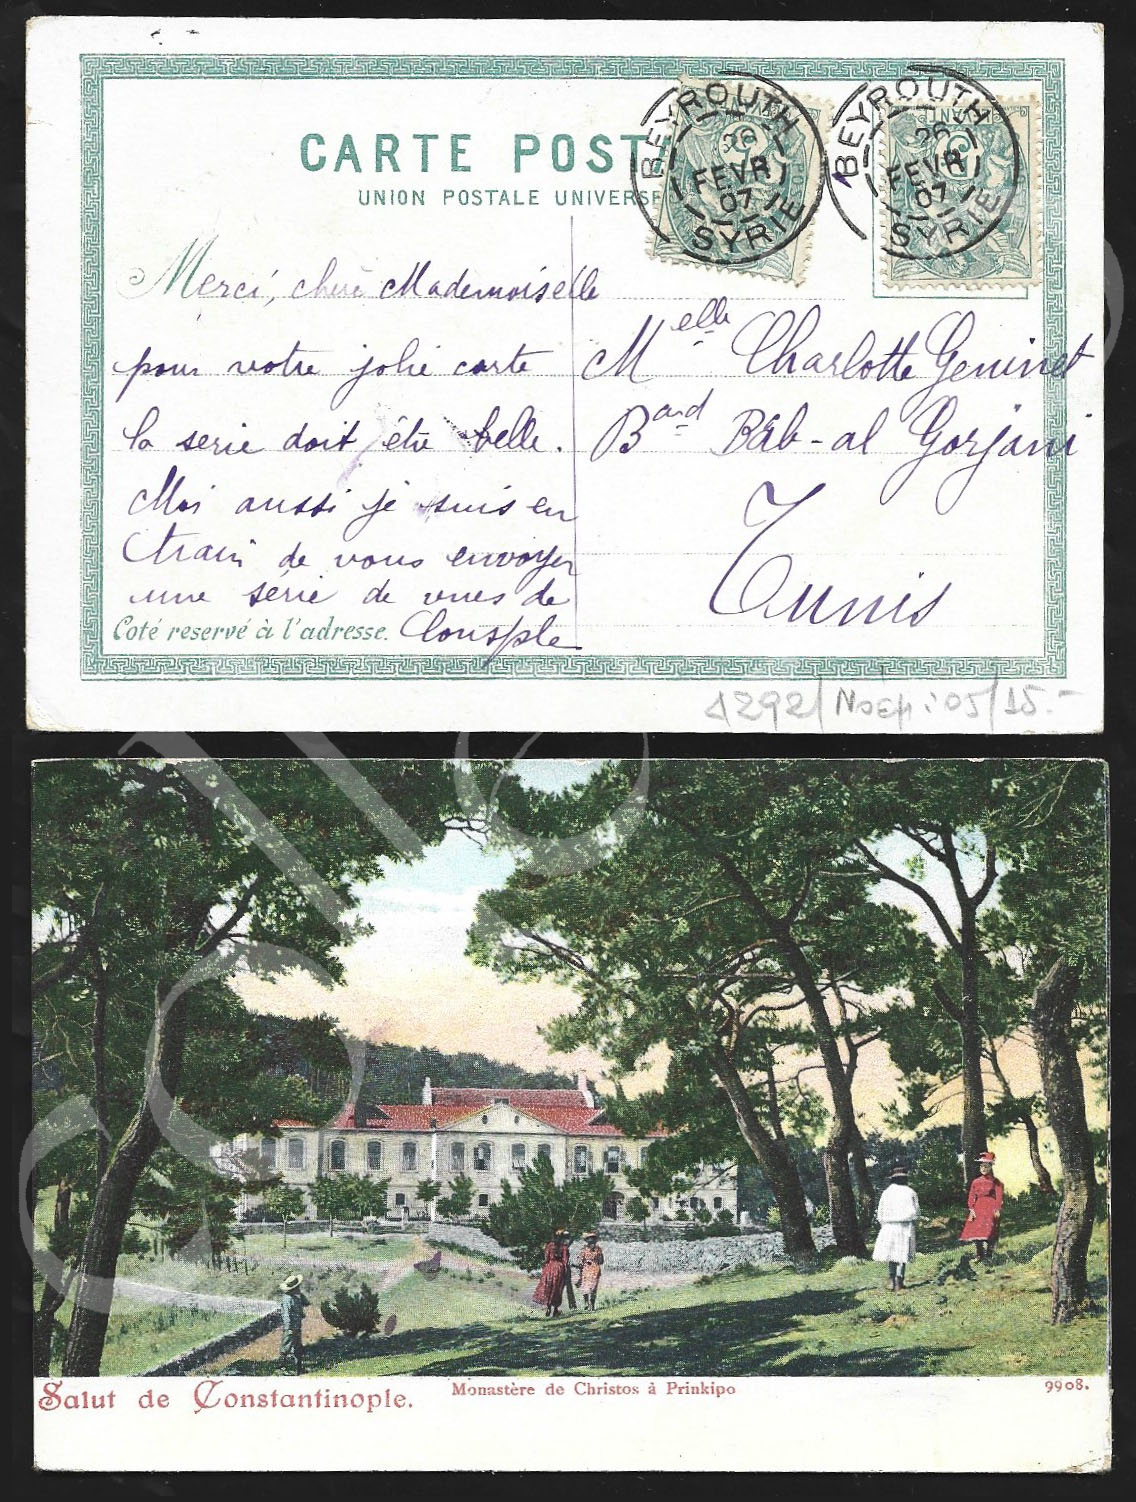 CARTE POSTA
UNION POSTALE UNIVERSE
BEYROUTH
26
FEVR
07
SYRIE
BEYROUTH
26
FEVR
07
SYRIE
5
Merci, chère Mademoiselle
pour votre jolie carte
la serie doit être belle.
Moi aussi je suis en
train de vous envoyer
une série de vues de
Coté reservé à l'adresse. Consple
Melle Charlotte Geninet
Bard Bab-al Gorjani
Tunis
1292/ :05/15.-
Salut de Constantinople.
Monastère de Christos à Prinkipo
9908.